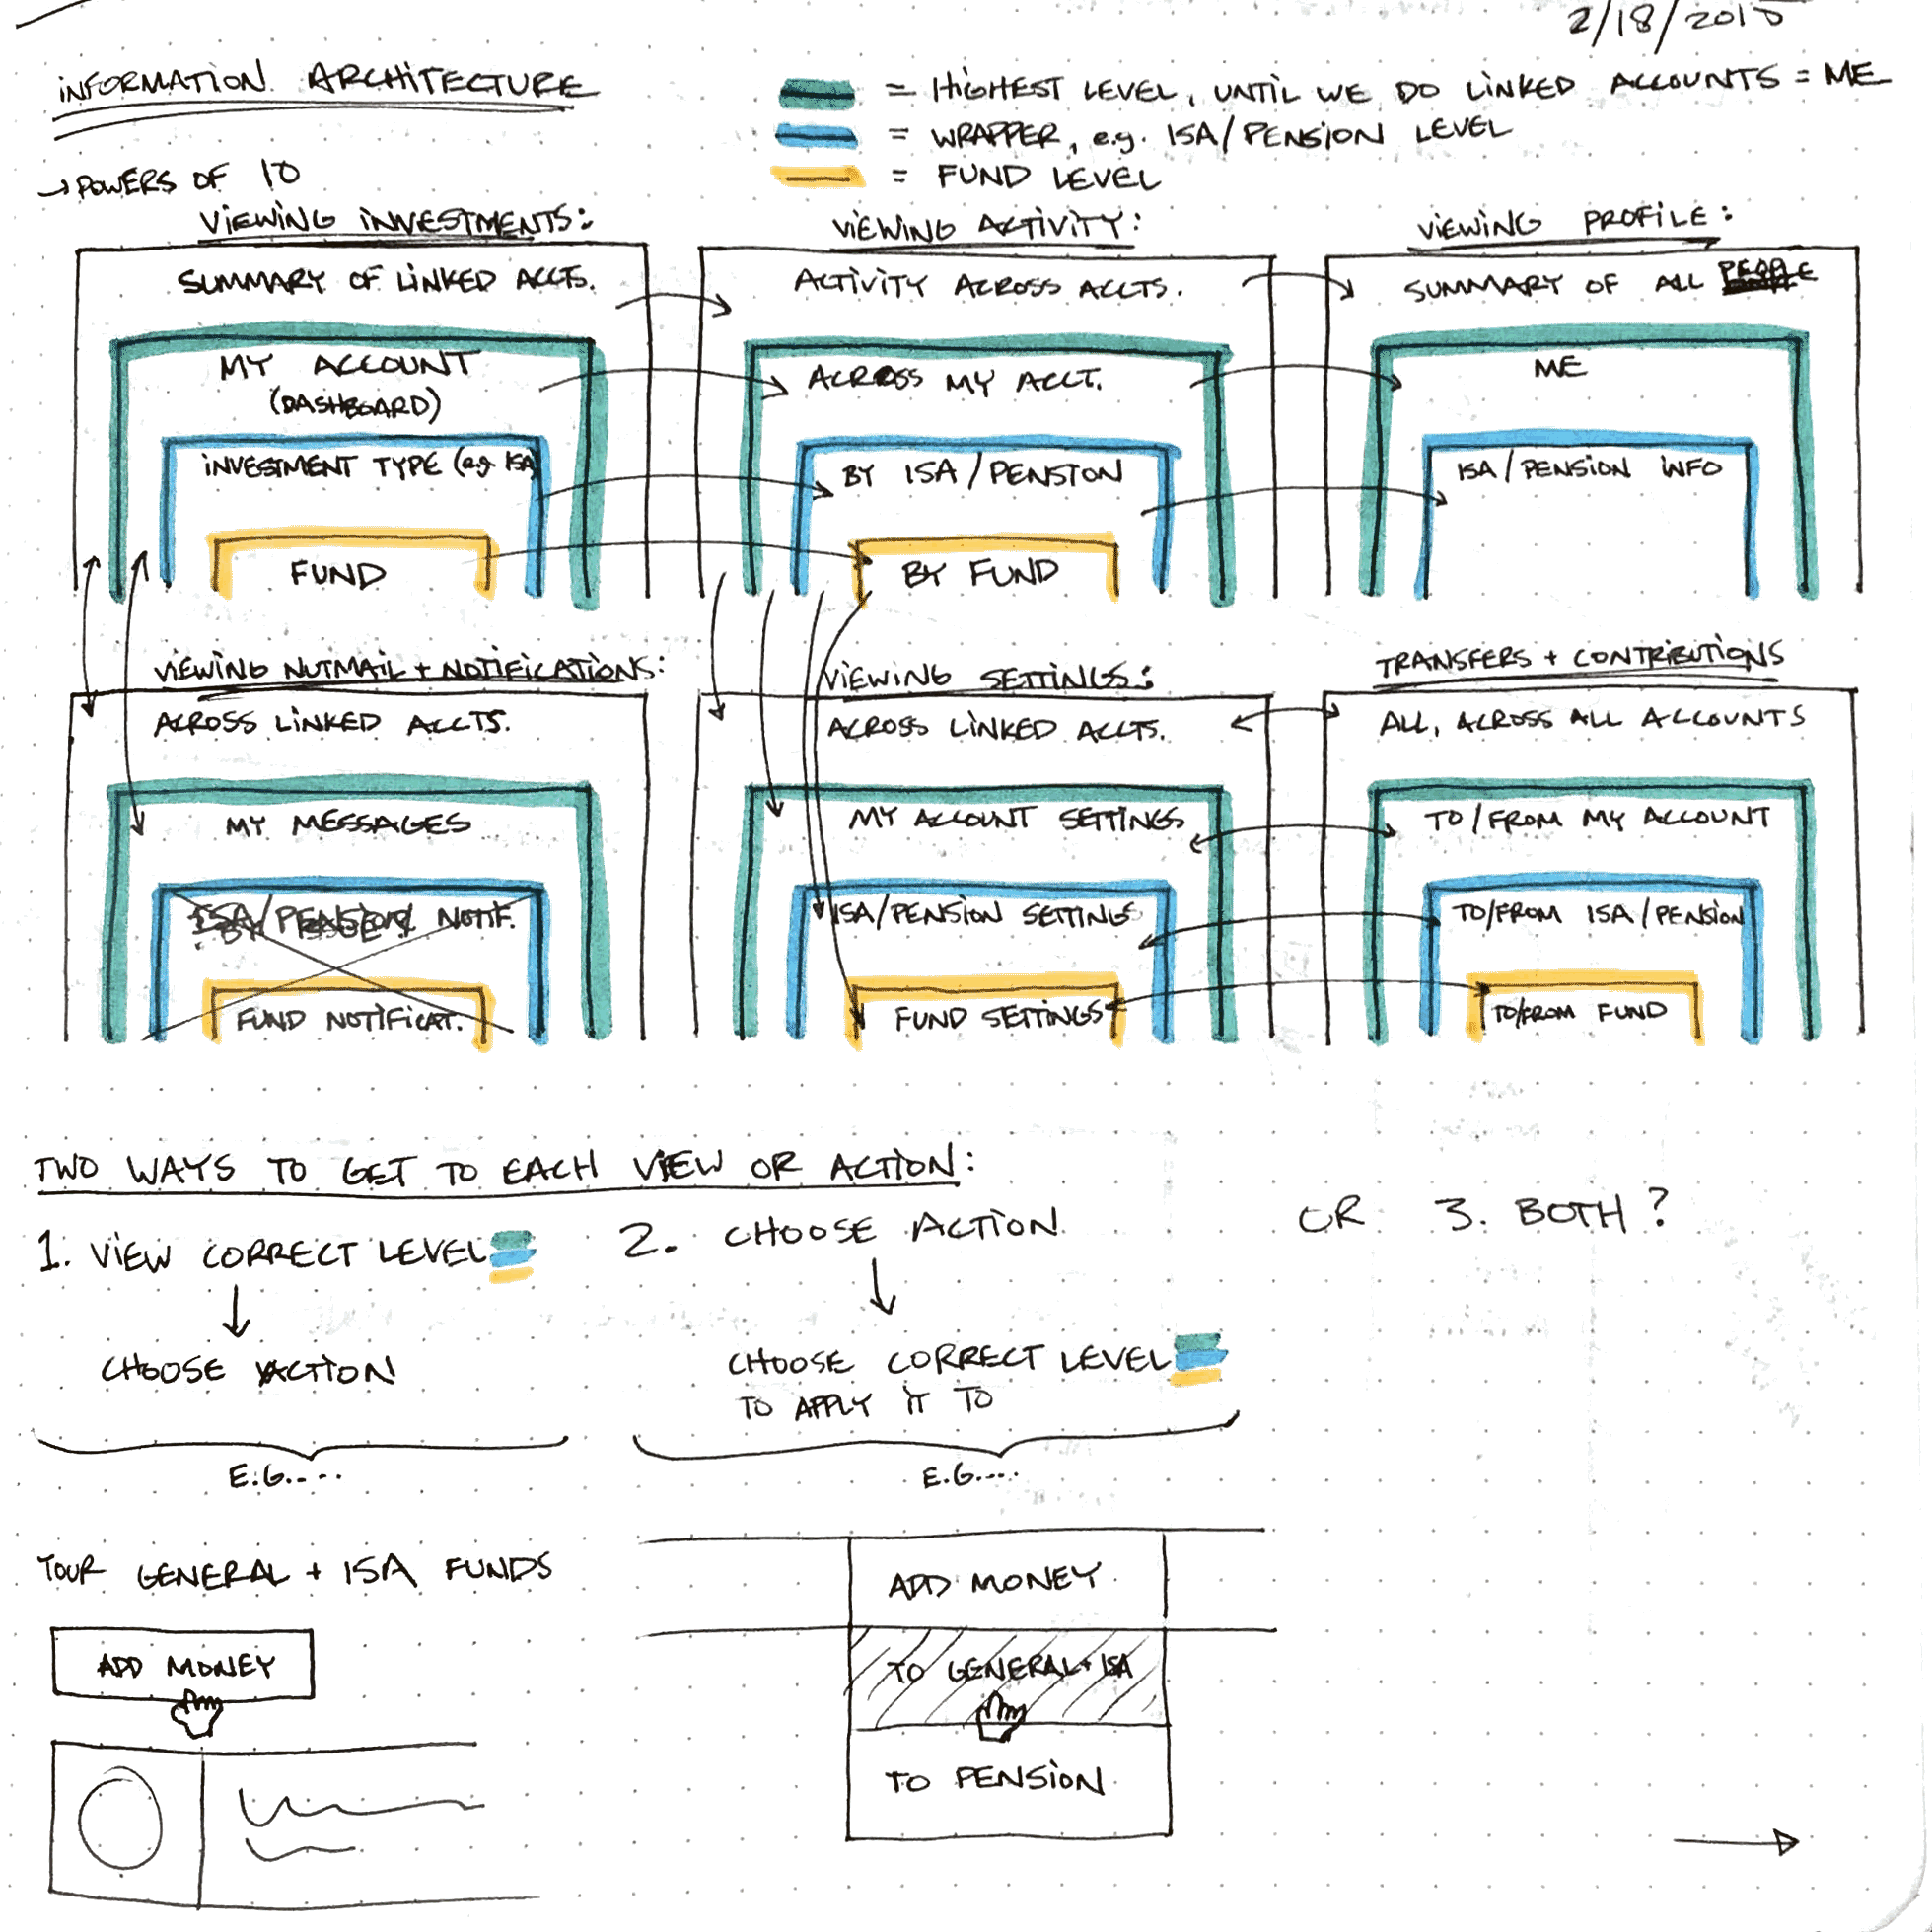 2/18/2015
INFORMATION ARCHITECTURE
= HIGHEST LEVEL, UNTIL WE DO LINKED ACCOUNTS = ME
= WRAPPER, e.g. ISA/PENSION LEVEL
= FUND LEVEL
→ POWERS OF 10
VIEWING INVESTMENTS:
SUMMARY OF LINKED ACCTS.
MY ACCOUNT
(DASHBOARD)
INVESTMENT TYPE (e.g. ISA)
FUND
VIEWING ACTIVITY:
ACTIVITY ACROSS ACCTS.
ACROSS MY ACCT.
BY ISA/PENSION
BY FUND
VIEWING PROFILE:
SUMMARY OF ALL PEOPLE
ME
ISA/PENSION INFO
VIEWING NUTMAIL + NOTIFICATIONS:
ACROSS LINKED ACCTS.
MY MESSAGES
ISA/PENSION NOTIF.
FUND NOTIFICAT.
VIEWING SETTINGS:
ACROSS LINKED ACCTS.
MY ACCOUNT SETTINGS
ISA/PENSION SETTINGS
FUND SETTINGS
TRANSFERS + CONTRIBUTIONS
ALL, ACROSS ALL ACCOUNTS
TO/FROM MY ACCOUNT
TO/FROM ISA/PENSION
TO/FROM FUND
TWO WAYS TO GET TO EACH VIEW OR ACTION:
1. VIEW CORRECT LEVEL
↓
CHOOSE ACTION
E.G....
YOUR GENERAL + ISA FUNDS
ADD MONEY
2. CHOOSE ACTION
↓
CHOOSE CORRECT LEVEL
TO APPLY IT TO
E.G....
ADD MONEY
TO GENERAL + ISA
TO PENSION
OR 3. BOTH?